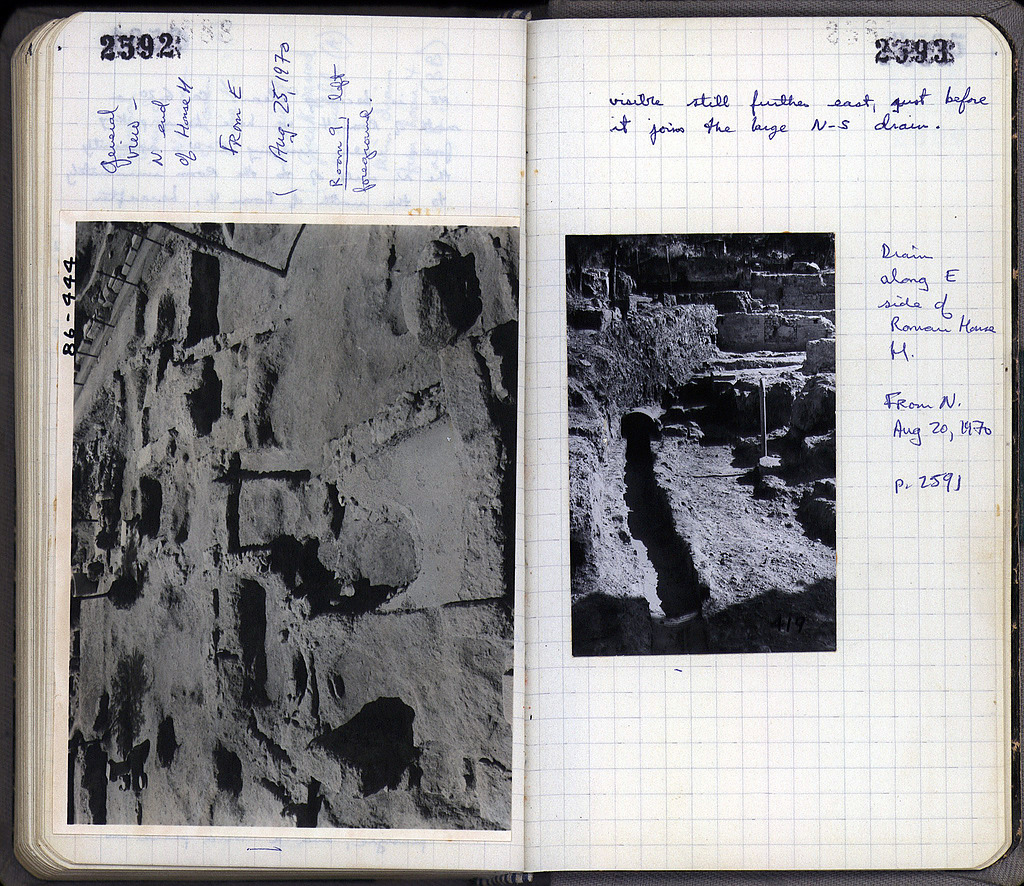 2392
General
view -
N. end
of House H
From E
(Aug. 25, 1970
Room 9, left
foreground.
86-444
2393
visible still further east, just before
it joins the large N-S drain.
Drain
along E
side of
Roman House
H.
From N.
Aug 20, 1970
p. 2591
419